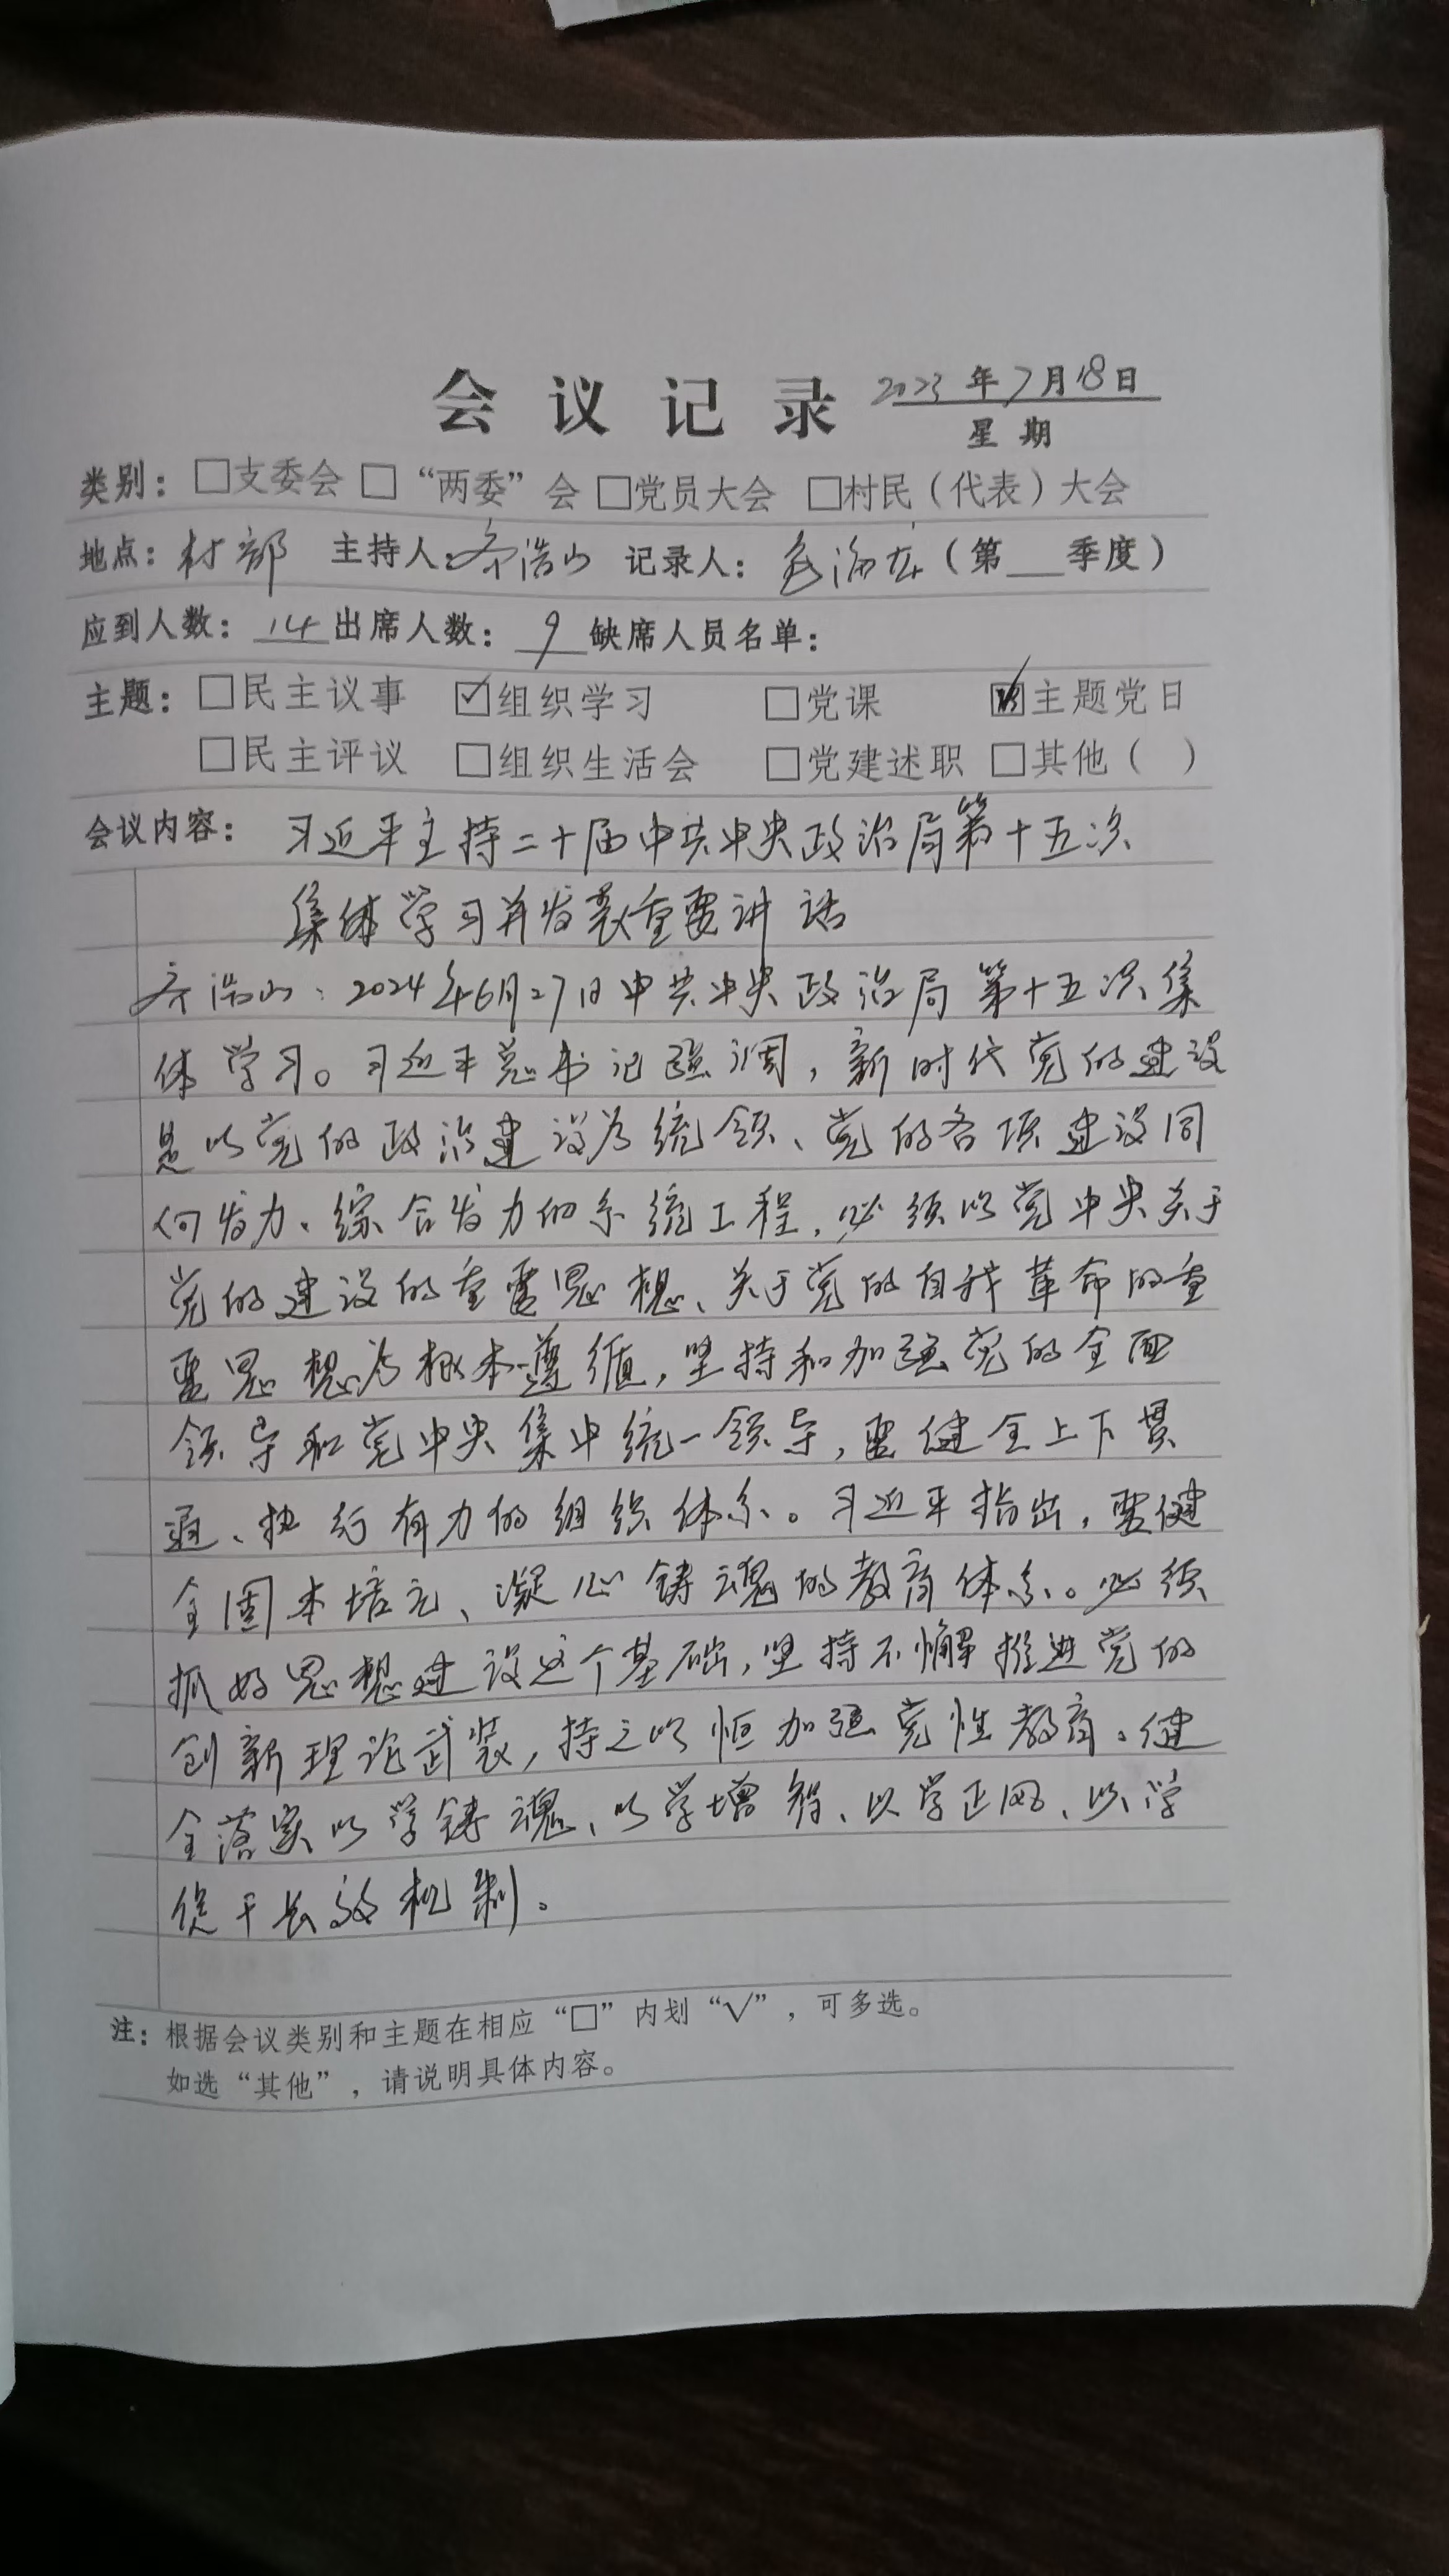 会议记录 2023年7月18日
星期
类别：□支委会 □“两委”会 □党员大会 □村民（代表）大会
地点：村部 主持人：齐浩山 记录人： （第__季度）
应到人数：14 出席人数：9 缺席人员名单：
主题：□民主议事 ☑组织学习 □党课 ☑主题党日
□民主评议 □组织生活会 □党建述职 □其他（ ）
会议内容：习近平主持二十届中共中央政治局第十五次
集体学习并发表重要讲话
齐浩山：2024年6月27日中共中央政治局第十五次集
体学习。习近平总书记强调，新时代党的建设
是以党的政治建设为统领、党的各项建设同
向发力、综合发力的系统工程，必须以党中央关于
党的建设的重要思想、关于党的自我革命的重
要思想为根本遵循，坚持和加强党的全面
领导和党中央集中统一领导，要健全上下贯
通、执行有力的组织体系。习近平指出，要健
全固本培元、凝心铸魂的教育体系。必须
抓好思想建设这个基础，坚持不懈推进党的
创新理论武装，持之以恒加强党性教育。健
全落实以学铸魂、以学增智、以学正风、以学
促干长效机制。
注：根据会议类别和主题在相应“□”内划“√”，可多选。
如选“其他”，请说明具体内容。